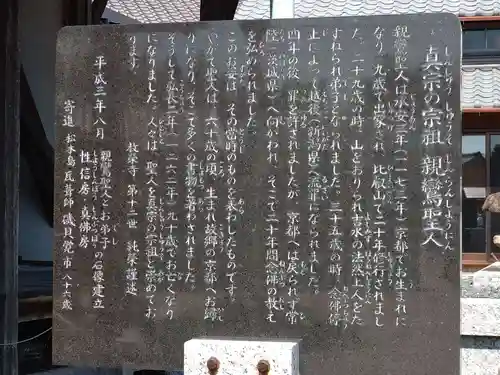 真宗の宗祖、親鸞聖人
親鸞聖人は承安三年（一一七三年）京都でお生まれに
なり、九歳で出家され、比叡山で二十年修行されまし
た。二十九歳の時、山をおりられ吉水の法然上人をた
ずねられ弟子となられました。三十五歳の時、念佛停
止によって越後（新潟県）へ流罪になられました。
四年の後、罪を許されましたが、京都へは戻られず常
陸（茨城県）へ向かわれ、そこで二十年間念佛の教え
を弘められました。
このお姿は、その当時のものを表わしたものです。
やがて聖人は、六十歳の頃、生まれ故郷の京都へお帰
りになり、そして多くの書物を著わされました。
そうして弘長二年（一二六二年）九十歳でお亡くなり
になりました。人々は、聖人を真宗の宗祖と崇めてお
ります。
教榮寺 第十二世 純榮 謹述
平成三年八月 親鸞聖人とお弟子
性信房・真佛房 の石像建立
寄進 松本島瓦菩師 磯貝覺市 八十六歳